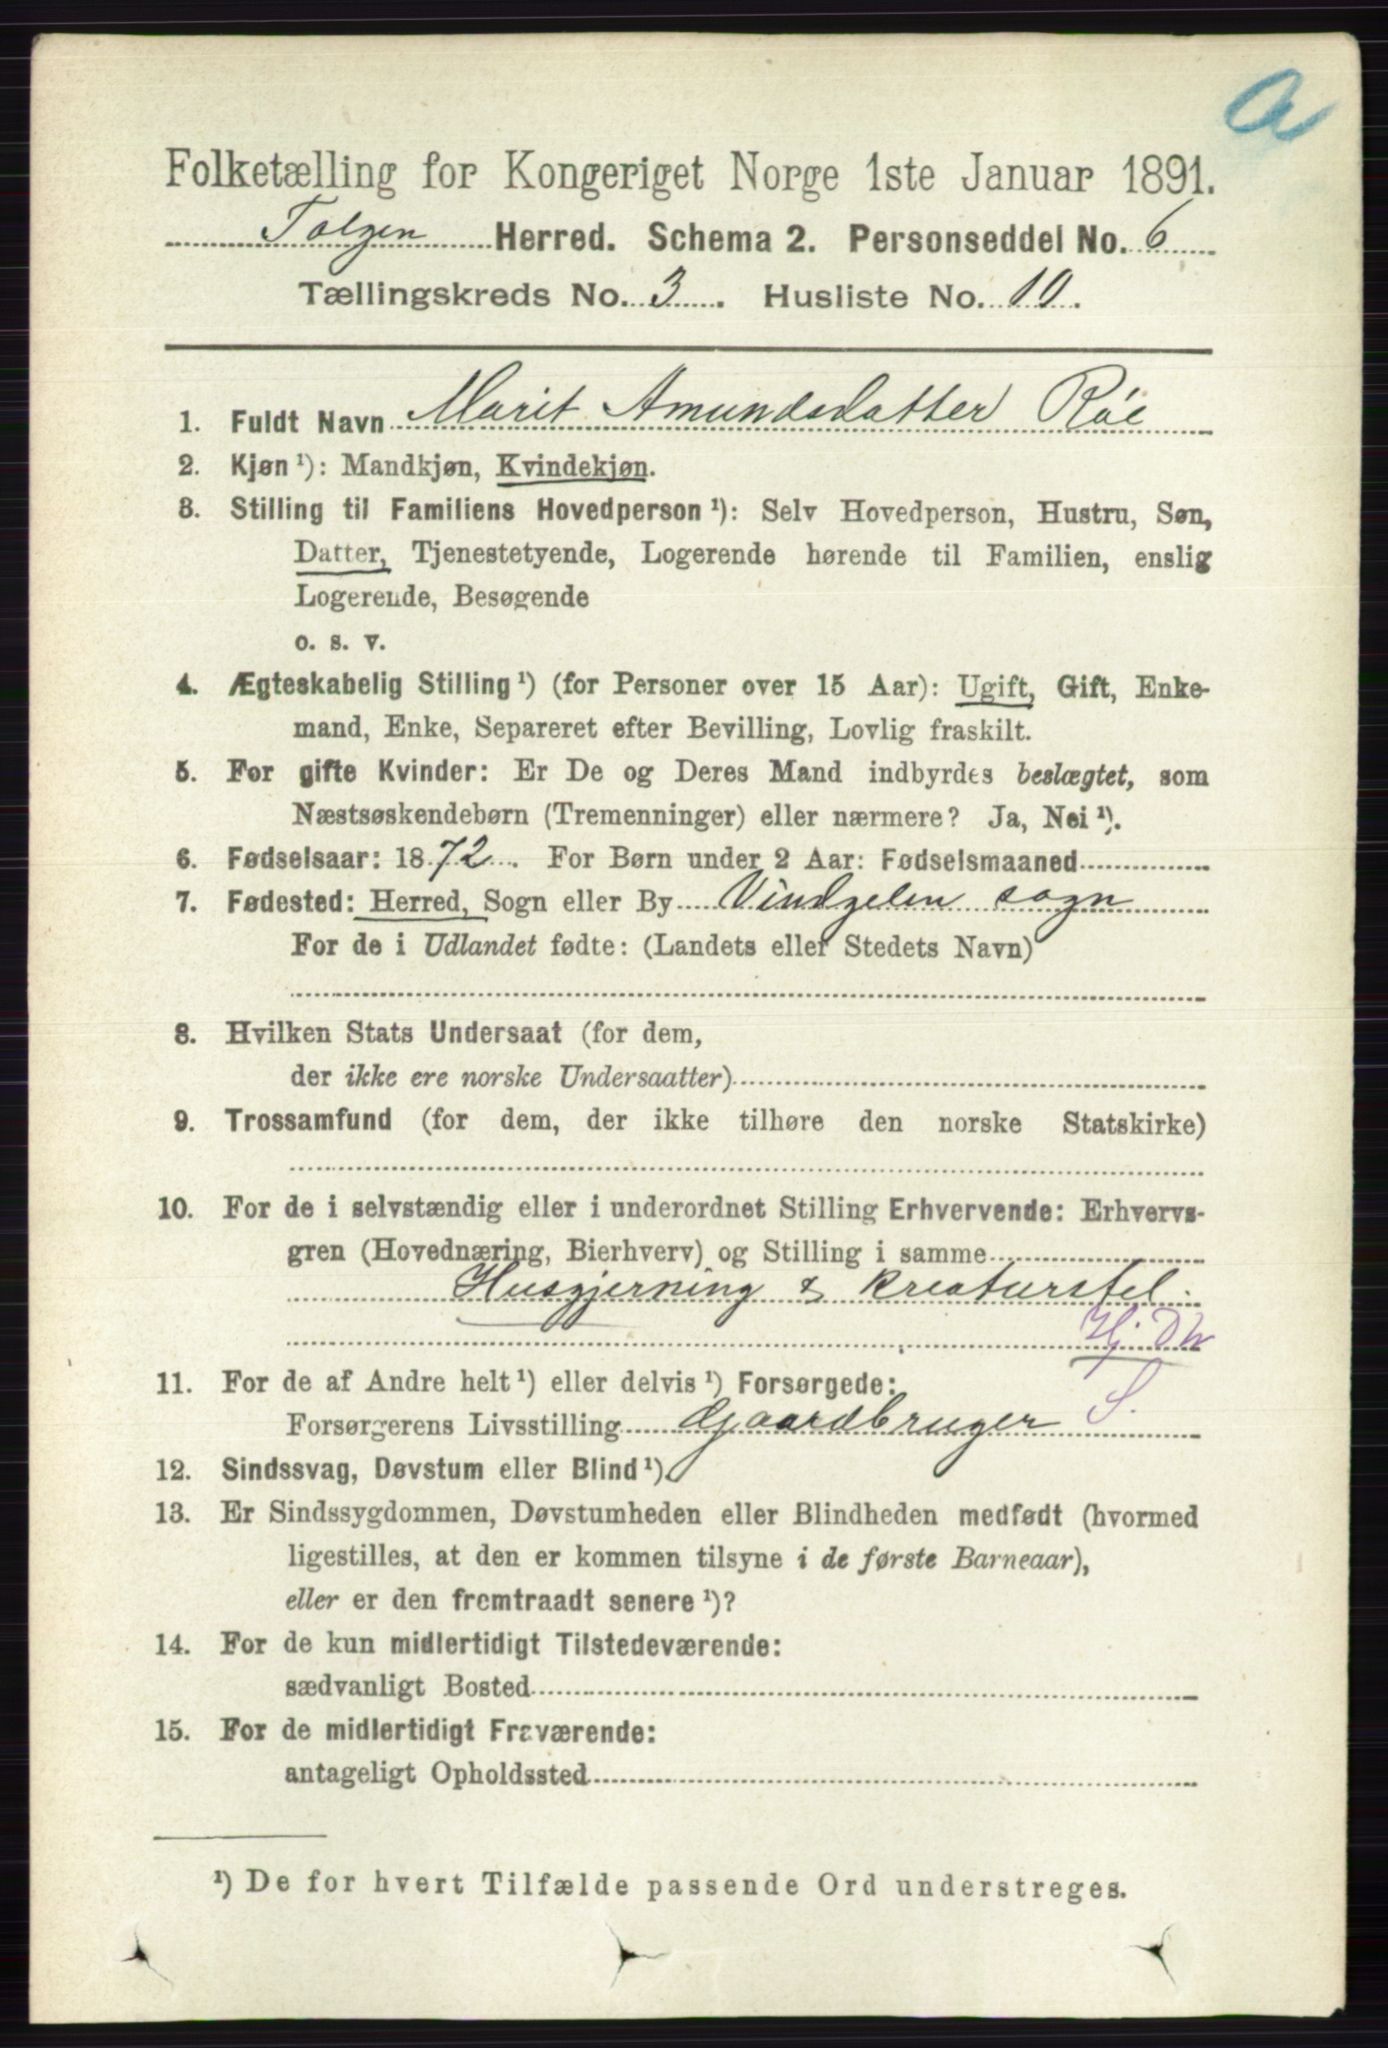 a
Folketælling for Kongeriget Norge 1ste Januar 1891.
Tolgen Herred. Schema 2. Personseddel No. 6
Tællingskreds No. 3. Husliste No. 10.
1. Fuldt Navn Marit Amundsdatter Røe
2. Kjøn ¹): Mandkjøn, Kvindekjøn.
3. Stilling til Familiens Hovedperson ¹): Selv Hovedperson, Hustru, Søn,
Datter, Tjenestetyende, Logerende hørende til Familien, enslig
Logerende, Besøgende
o. s. v.
4. Ægteskabelig Stilling ¹) (for Personer over 15 Aar): Ugift, Gift, Enke-
mand, Enke, Separeret efter Bevilling, Lovlig fraskilt.
5. For gifte Kvinder: Er De og Deres Mand indbyrdes beslægtet, som
Næstsøskendebørn (Tremenninger) eller nærmere? Ja, Nei ¹).
6. Fødselsaar: 1872. For Børn under 2 Aar: Fødselsmaaned
7. Fødested: Herred, Sogn eller By Vindgelen sogn
For de i Udlandet fødte: (Landets eller Stedets Navn)
8. Hvilken Stats Undersaat (for dem,
der ikke ere norske Undersaatter)
9. Trossamfund (for dem, der ikke tilhøre den norske Statskirke)
10. For de i selvstændig eller i underordnet Stilling Erhvervende: Erhvervs-
gren (Hovednæring, Bierhverv) og Stilling i samme
Husgjerning & kreaturstel.
Hj. Dh
11. For de af Andre helt ¹) eller delvis ¹) Forsørgede:
Forsørgerens Livsstilling Gaardbruger S.
12. Sindssvag, Døvstum eller Blind ¹).
13. Er Sindssygdommen, Døvstumheden eller Blindheden medfødt (hvormed
ligestilles, at den er kommen tilsyne i de første Barneaar),
eller er den fremtraadt senere ¹)?
14. For de kun midlertidigt Tilstedeværende:
sædvanligt Bosted
15. For de midlertidigt Fraværende:
antageligt Opholdssted
¹) De for hvert Tilfælde passende Ord understreges.